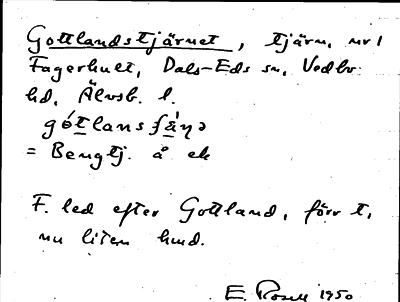 Gottlandstjärnet, tjärn, nr 1
Fagerhult, Dals-Eds sn, Vedbo
hd, Älvsb. l.
gótlansʃä̀ṇə
= Bengtj. å ek
F. led efter Gottland, förr t.
nu liten hmd.
E. Rosell 1950